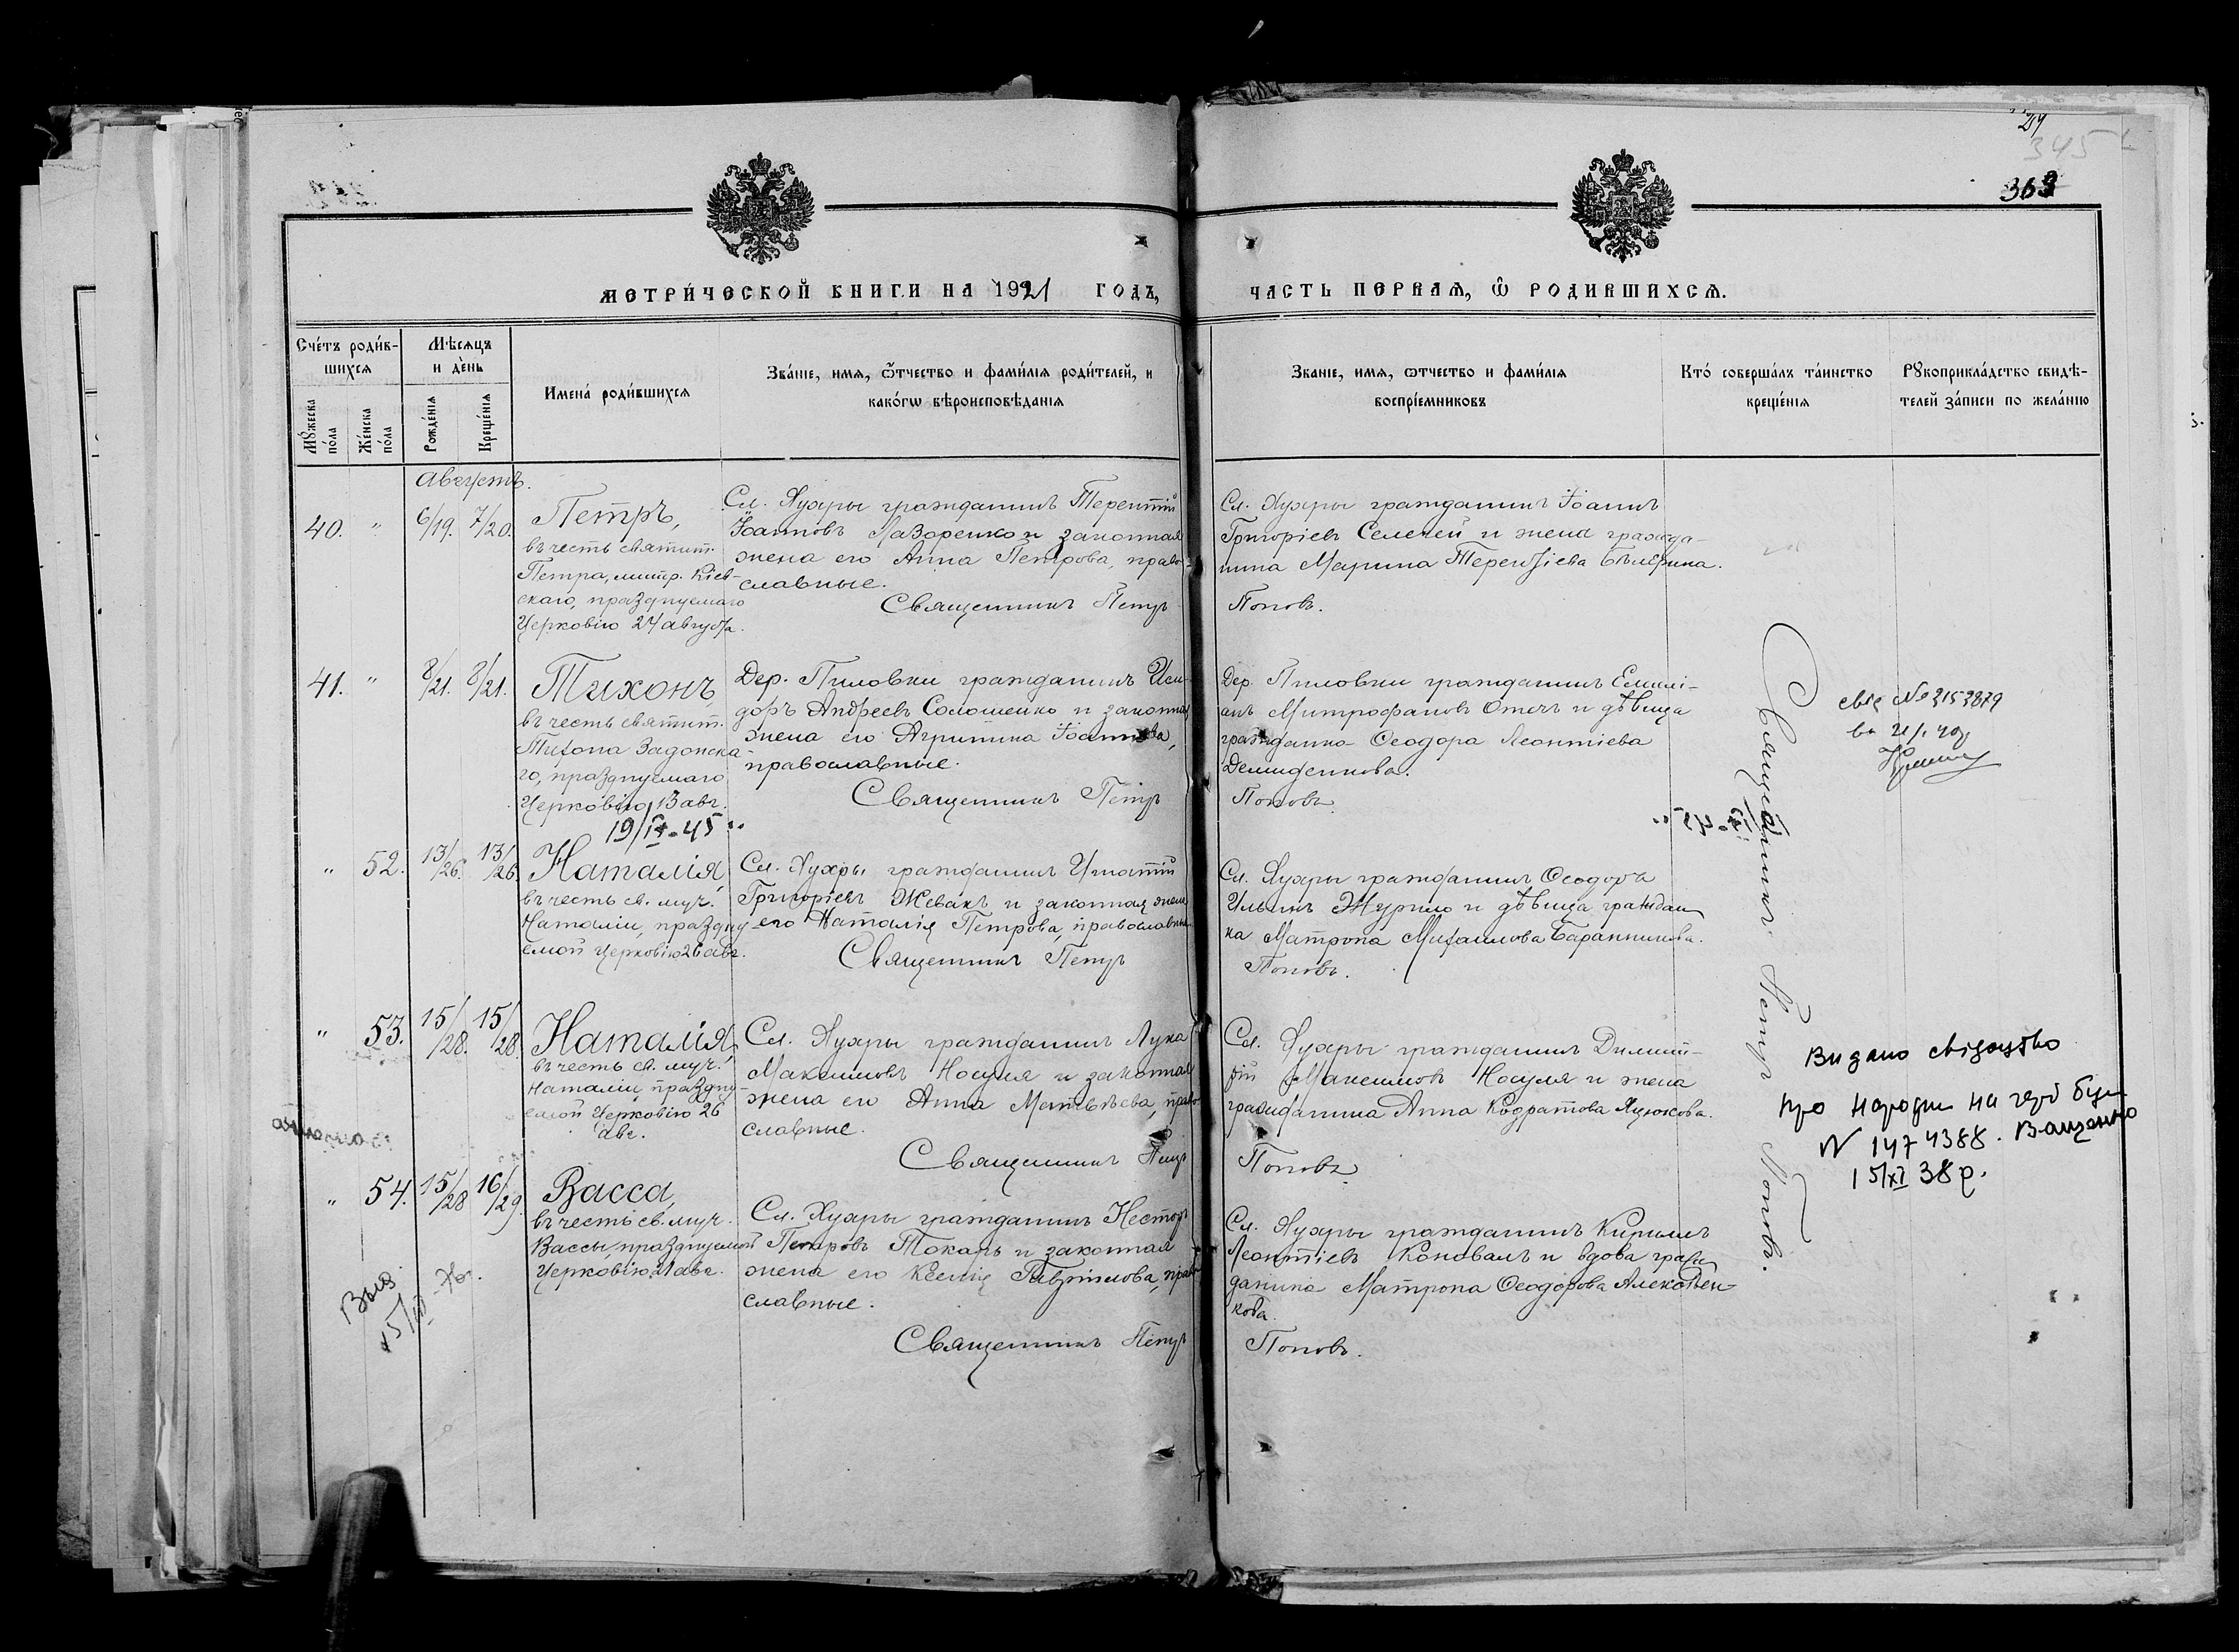 345
369
МЕТРИ́ЧЕСКОЙ КНИГИ НА 1921 ГОДЪ,
ЧАСТЬ ПЕРВАЯ, Ѽ РОДИВШИХСЯ.
Сче́тъ роди́в-
шихся
Му́жеска по́ла
Же́нска по́ла
Мѣ́сяцъ
и де́нь
Рожде́нія
Креще́нія
Имена́ роди́вшихся
Зва́ніе, имя, ѻ҆́тчество и фами́лія роди́телей, и
како́гѡ вѣроисповѣ́данія
Зва́ніе, имя, ѻтчество и фами́лія
воспріе́мниковъ
Кто́ соверша́лъ та́инство
креще́нія
Рꙋкоприкла́дство свидѣ́-
телей за́писи по жела́нію
Августъ.
40. " 6/19. 7/20.
Петръ,
въ честь святит.
Петра, митр. Кіев-
скаго, празднуемаго
Церковію 24 августа.
Сл. Хухры гражданинъ Терентій
Іоанновъ Лазоренко и законная
жена его Анна Петрова, право-
славные.
Священникъ Петръ
Сл. Хухры гражданинъ Іоаннъ
Григоріевъ Селечей и жена гражда-
нина Марина Терентіева
Поповъ.
41. " 8/21. 8/21.
Тихонъ,
въ честь святит.
Тихона Задонска-
го, празднуемаго
Церковію 13 авг.
19/IV-45
Дер. Пиловки гражданинъ Иси-
доръ Андреевъ Соложенко и законная
жена его Агрипина Іоаннова,
православные.
Священникъ Петръ
Дер. Пиловки гражданинъ Емилі-
анъ Митрофановъ Отечъ и дѣвица
гражданка Ѳеодора Леонтіева
Демиденкова.
Поповъ
№ 3153879
" 52. 13/26. 13/26.
Наталія,
въ честь св. муч.
Наталіи, праздну-
емой Церковію 26 авг.
Сл. Хухры гражданинъ Игнатій
Григоріевъ Жевакъ и законная жена
его Наталія Петрова, православные
Священникъ Петръ
Сл. Хухры гражданинъ Ѳеодоръ
Ильинъ Журило и дѣвица граждан
ка Матрона Михаилова Баранникова.
Поповъ.
" 53. 15/28. 15/28.
Наталія,
въ честь св. муч.
Наталіи, праздну-
емой Церковію 26
авг.
Сл. Хухры гражданинъ Лука
Максимовъ Носуля и законная
жена его Анна Матвѣева, право
славные.
Священникъ Петръ
Сл. Хухры гражданинъ Димит-
рій Максимовъ Носуля и жена
гражданина Анна Кодратова
Поповъ
Видано свідоцтво
про народж на герб бум
№ 1474388. Ващенко
15/XI 38 р.
" 54. 15/28 16/29.
Васса,
въ честь св. муч.
Вассы, празднуемой
Церковію 21 авг.
Сл. Хухры гражданинъ Несторъ
Петровъ Токарь и законная
жена его Ксенія Гавріилова, право
славные.
Священникъ Петръ
Сл. Хухры гражданинъ Кириллъ
Леонтіевъ Коновалъ и вдова граж
данина Матрона Ѳеодорова Алексѣен-
кова.
Поповъ.
Священникъ Петръ Поповъ.